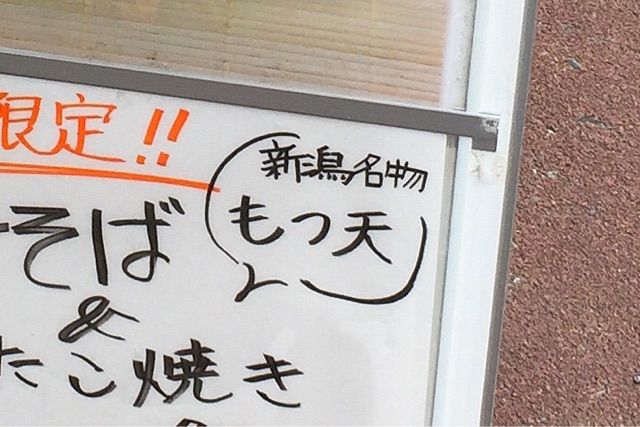 限定!!
新潟名物
もつ天
そば
&
たこ焼き